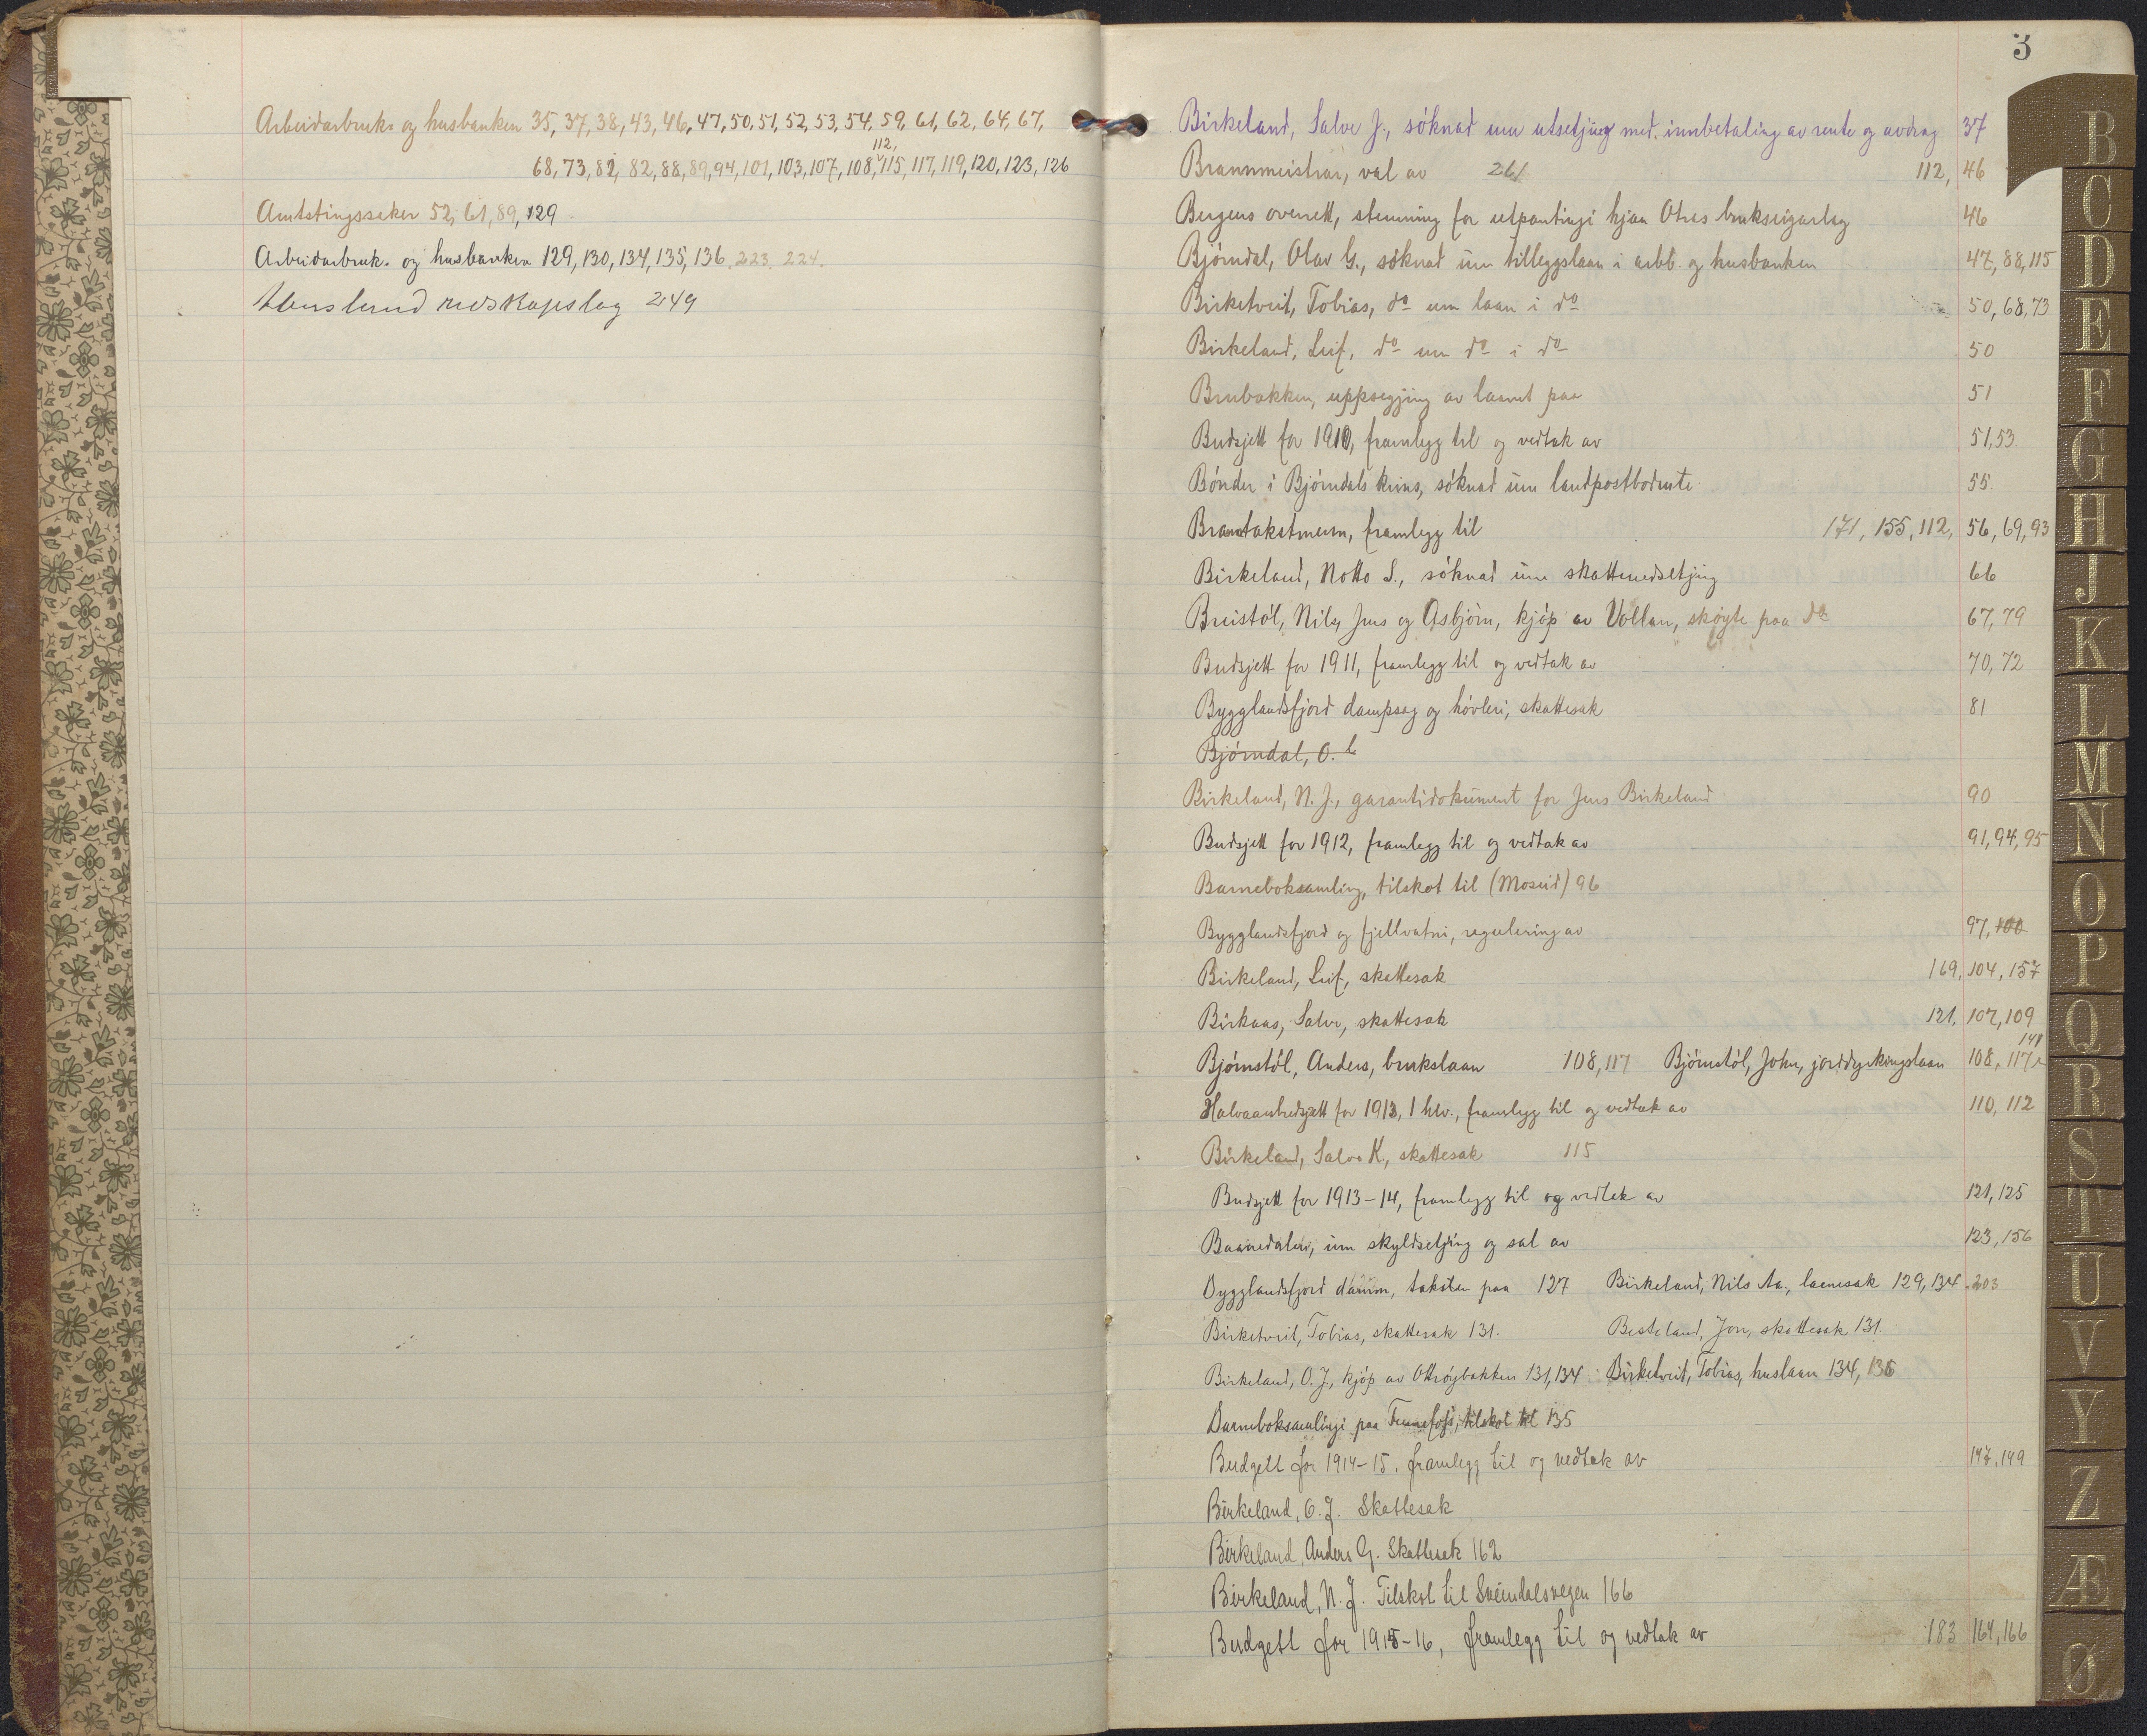 Arbeidarbruks og husbanken 35, 37, 38, 43, 46, 47, 50, 51, 52, 53, 54, 59, 61, 62, 64, 67,
112,
68, 73, 82, 82, 88, 89, 94, 101, 103, 107, 108, 115, 117, 119, 120, 123, 126
Amtstingssaker 52, 61, 89, 129
Arbeidarbruk- og husbanken 129, 130, 134, 135, 136, 223, 224.
redskapslag 249
3
Birkeland, Salve J., söknad um utsetjing med innbetaling av rente og avdrag 37
Brannmeistrar, val av 261 112, 46
Bergens overrett, stemning for utpantingi hjaa Otras brukseigarlag 46
Björndal, Olav G., söknad um tilleggslaan i arbb. og husbanken 47, 88, 115
Birketveit, Tobias, do um laan i do 50, 68, 73
Birkeland, Leif, do um do i do 50
Brubakken, uppsegjing av laanet paa 51
Budsjett for 1910, framlegg til og vedtak av 51, 53
Bönder i Björndals krins, söknad um landpostbodrute 55
Branntakstmenn, framlegg til 171, 155, 112, 56, 69, 93
Birkeland, Notto S., söknad um skattenedsetjing 66
Breistöl, Nils, Jens og Asbjörn, kjöp av Vollan, sköyte paa do 67, 79
Budsjett for 1911, framlegg til og vedtak av 70, 72
Bygglandsfjord dampsag og hövleri, skattesak 81
Bjørndal, O.
Birkeland, N. J., garantidokument for Jens Birkeland 90
Budsjett for 1912, framlegg til og vedtak av 91, 94, 95
Barneboksamling, tilskot til (Moseid) 96
Bygglandsfjord og fjellvatni, regulering av 97, 100
Birkeland, Leif, skattesak 169, 104, 157
Birkaas, Salve, skattesak 121, 107, 109
148
Bjömstöl, Anders, brukslaan 108, 117 Bjömstöl, John, jorddyrkingslaan 108, 117
Halvaarsbudsjett for 1913, 1 hlv., framlegg til og vedtak av 110, 112
Birkeland, Salve K., skattesak 115
Budsjett for 1913-14, framlegg til og vedtak av 121, 125
um skyldsetjing og sal av 123, 156
Bygglandsfjord damm, taksten paa 127 Birkeland, Nils Aa., laanesak 129, 134. 203
Birketveit, Tobias, skattesak 131. Besteland, Jon, skattesak 131.
Birkeland, O. J., kjöp av Ottröybakken 131, 134 Birketveit, Tobias, huslaan 134, 136
Barneboksamlingi paa Fennefoss, tilskot til 135
Budgett for 1914-15, framlegg til og vedtak av 147, 149
Birkeland, O. J. Skattesak
Birkeland, Anders G. Skattesak 162
Birkeland, N. J. Tilskot til Sveindalsvegen 166
Budgett for 1915-16, framlegg til og vedtak av 183 164, 166
B
C
D
E
F
G
H
J
K
L
M
N
O
P
Q
R
S
T
U
V
Y
Z
Æ
Ø